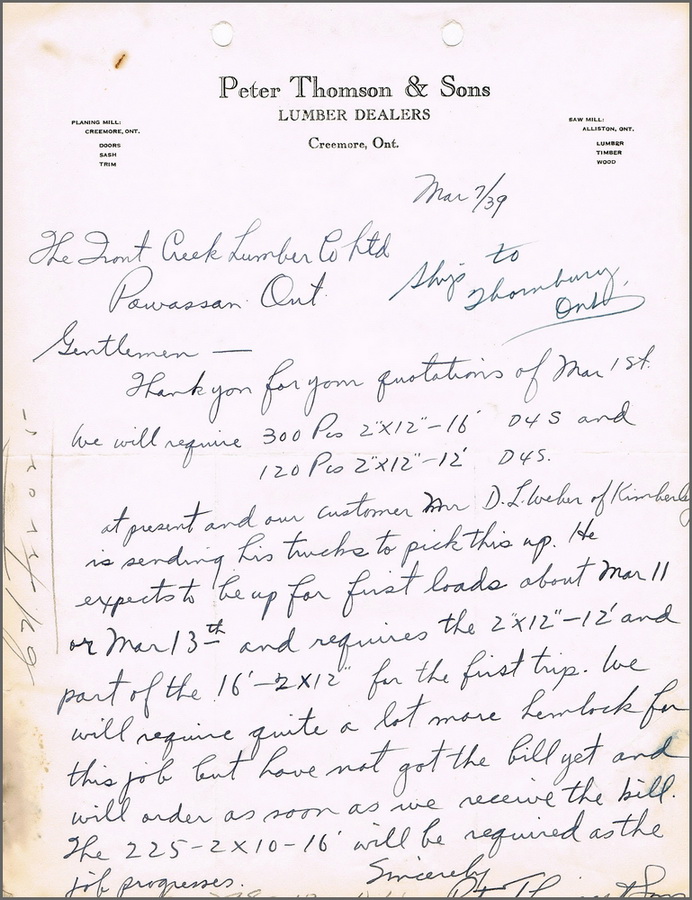 Peter Thomson & Sons
LUMBER DEALERS
Creemore, Ont.
PLANING MILL:
CREEMORE, ONT.
DOORS
SASH
TRIM
SAW MILL:
ALLISTON, ONT.
LUMBER
TIMBER
WOOD
Mar 7/39
The Trout Creek Lumber Co Ltd
Powassan Ont.
Ship to
Thornbury,
Ont
Gentlemen —
Thank you for your quotations of Mar 1st.
We will require 300 Pcs 2"x12"-16' D4S and
120 Pcs 2"x12"-12' D4S.
at present and our customer Mr D. L. Weber of Kimberley
is sending his trucks to pick this up. He
expects to be up for first loads about Mar 11
or Mar 13th and requires the 2"x12"-12' and
part of the 16'-2x12" for the first trip. We
will require quite a lot more hemlock for
this job but have not got the bill yet and
will order as soon as we receive the bill.
The 225-2x10-16' will be required as the
job progresses.
Sincerely